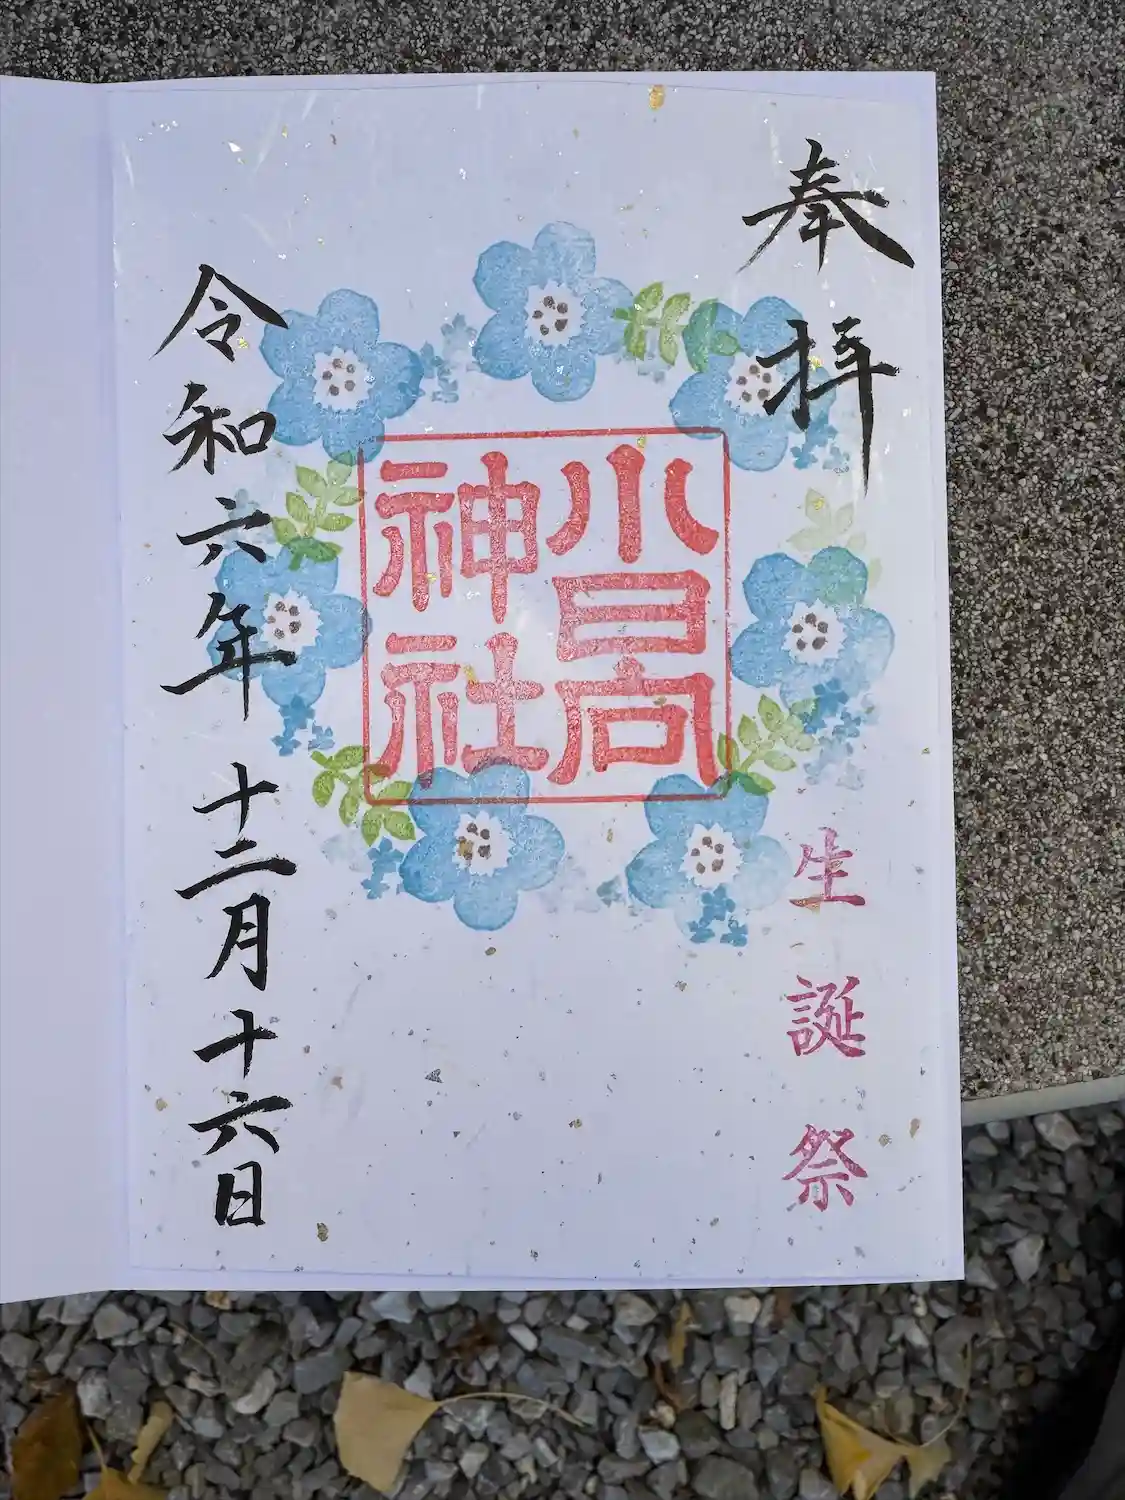 奉拝
生誕祭
小日向
神社
令和六年十二月十六日